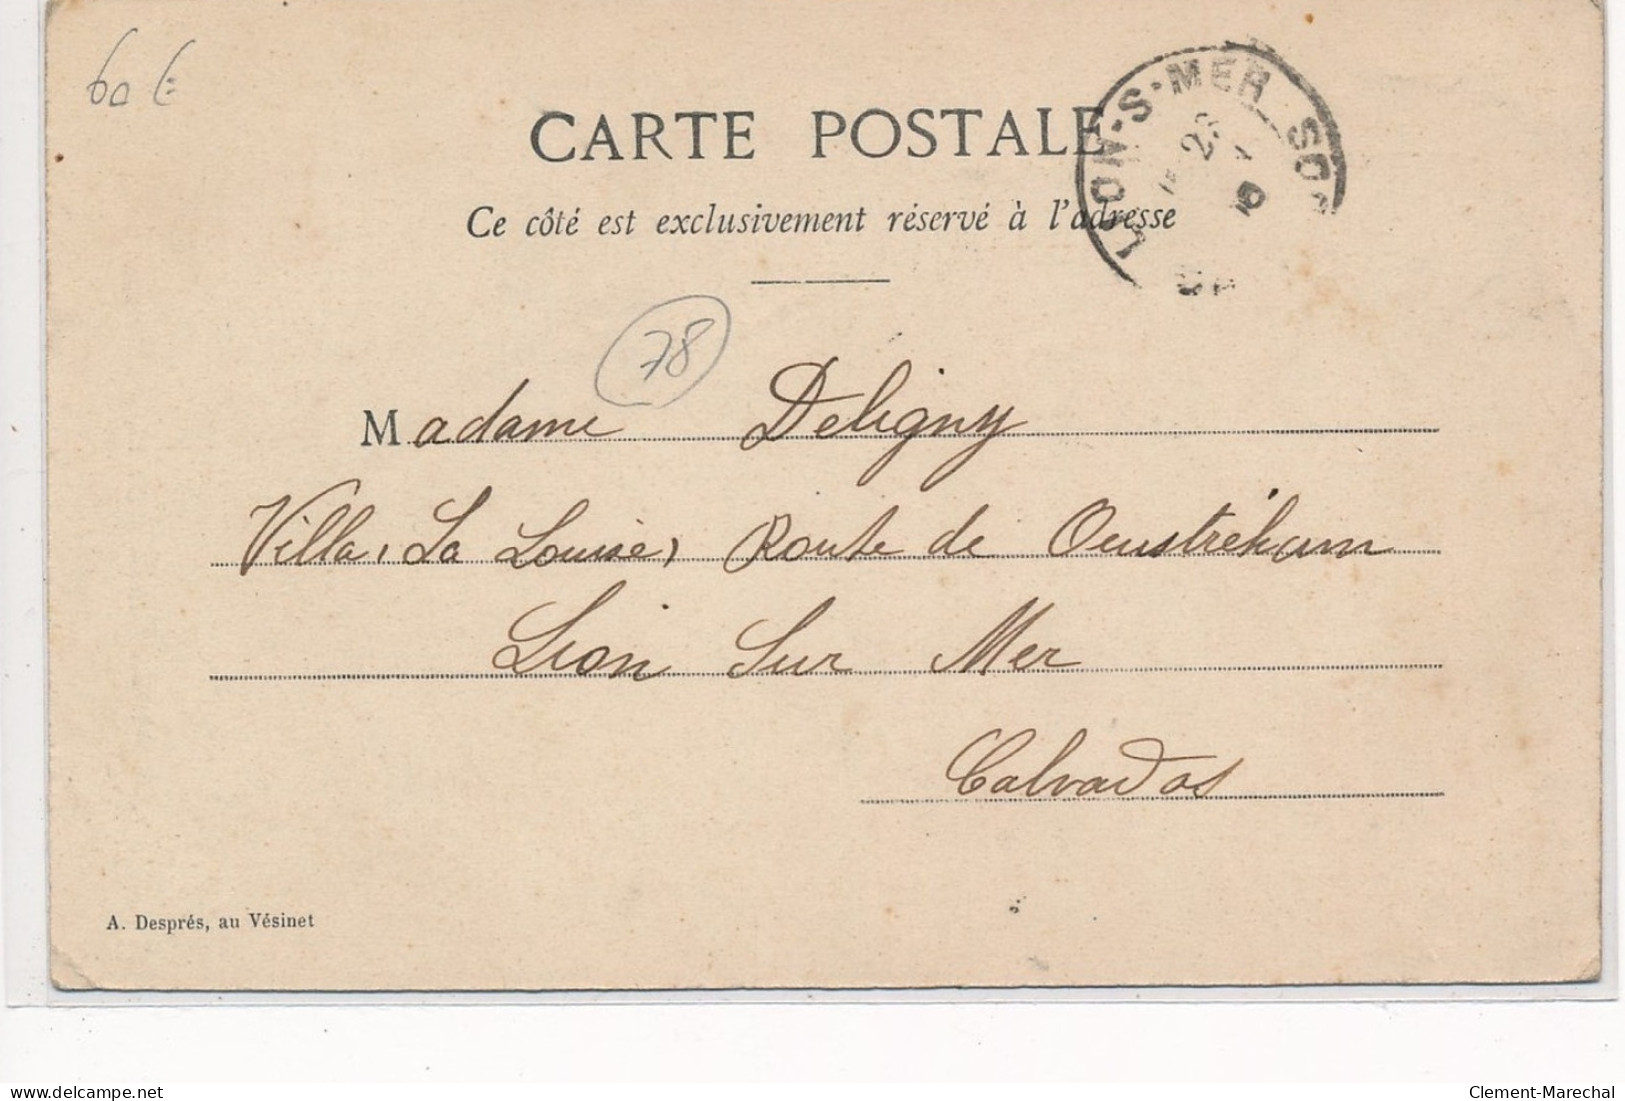 60 €
CARTE POSTALE
Ce côté est exclusivement réservé à l'adresse
LION-S-MER
78
Madame Deligny
Villa, La Louise, Route de Oeustréham
Lion Sur Mer
Calvados
A. Després, au Vésinet
delcampe.net
Clement-Marechal